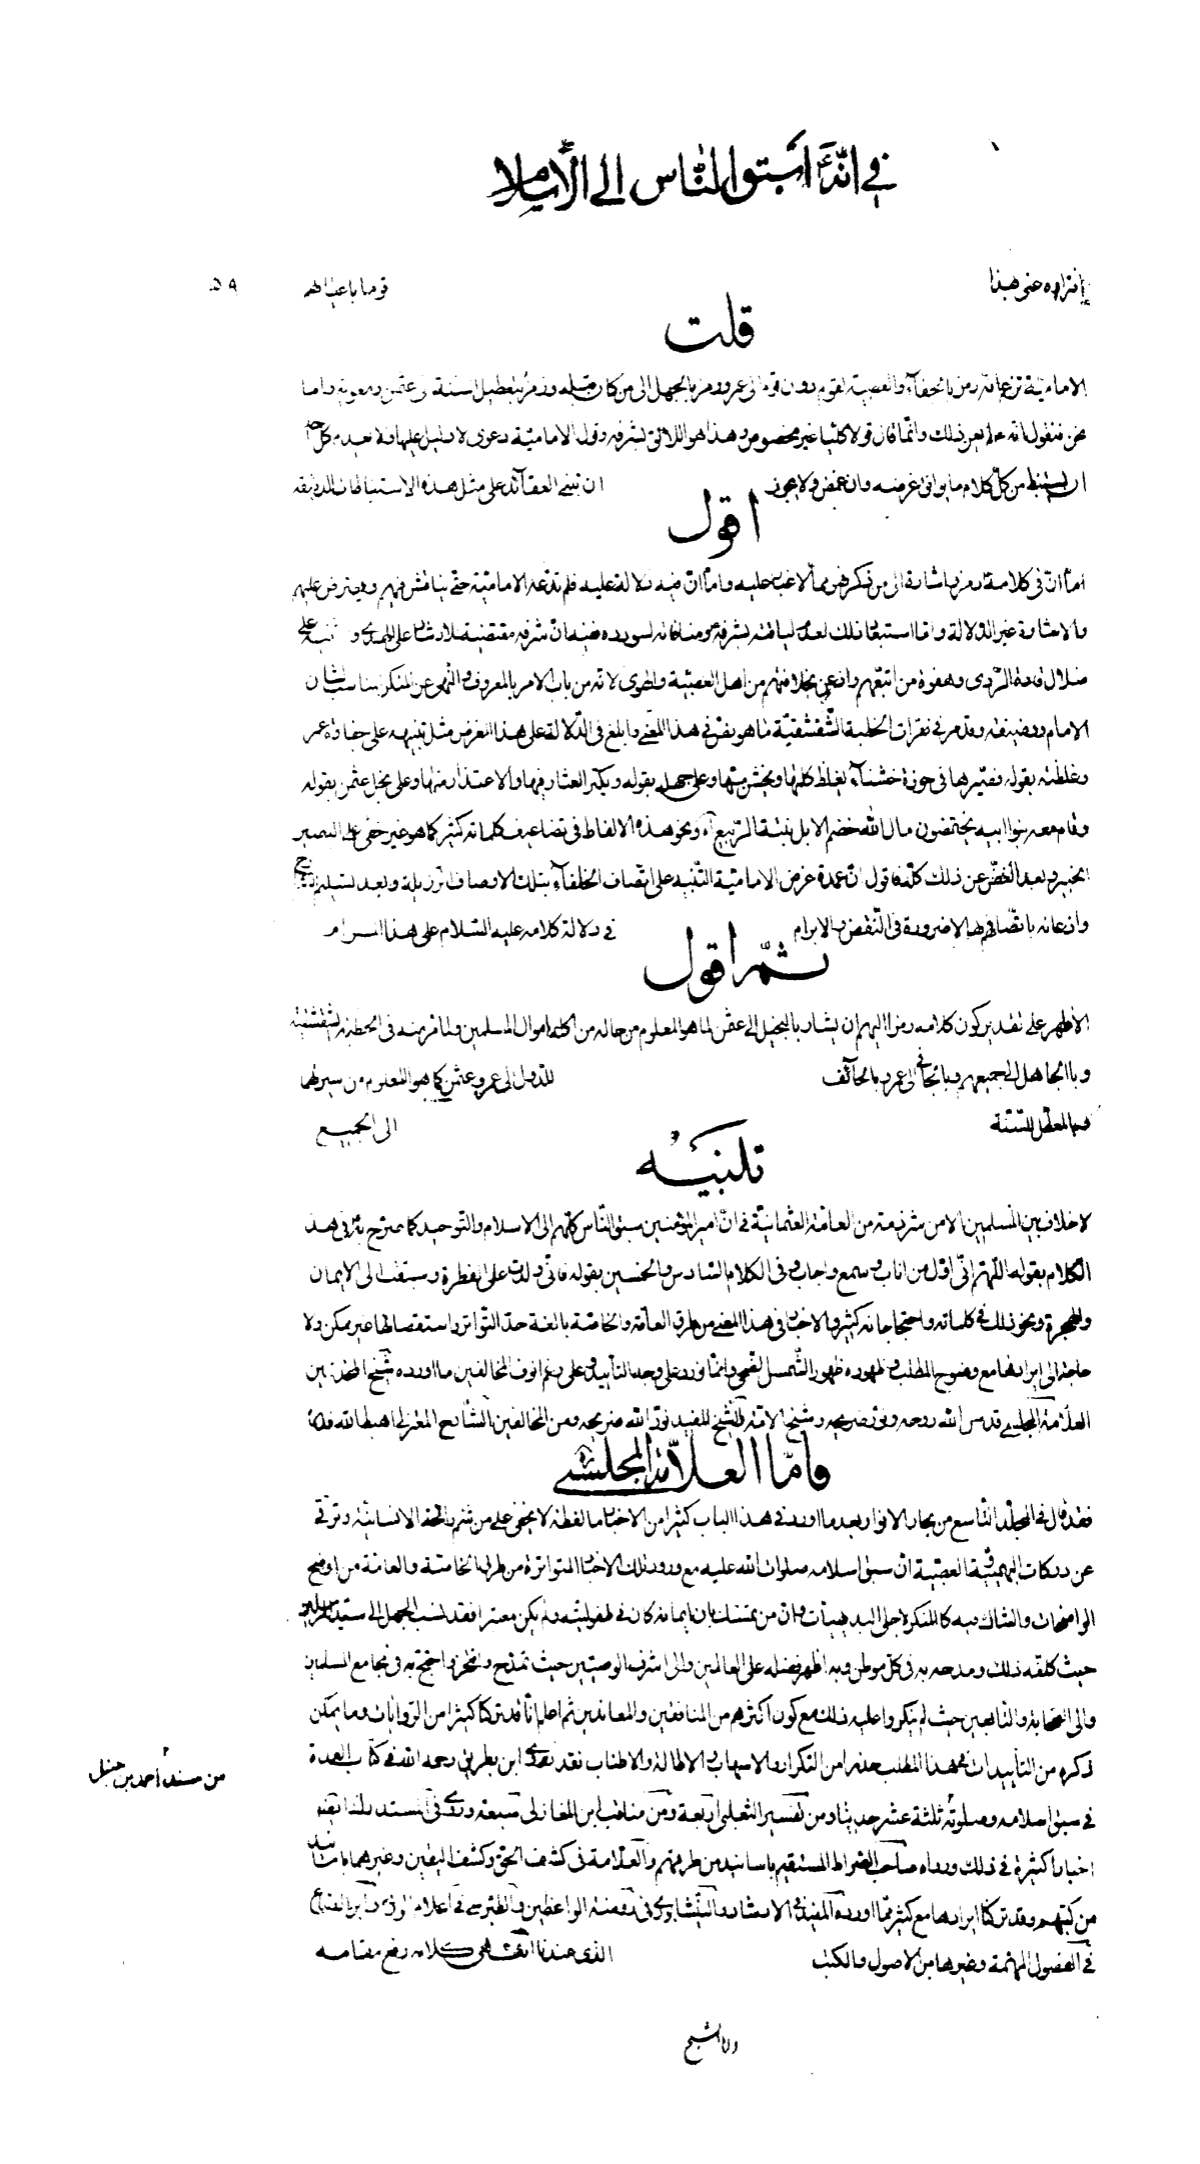 في انّه اسبق الناس الى الاسلام
إفتراه عنى بهذا قوما باعيانهم ٥٩
قلت
الاماميّة تزعم انّه رمز بالجفاء والعصبية لقوم دون قوم الى عمر ورمز بالجهل الى من كان قبله ورمز بتعطيل السنة الى عثمن ومعوية واما
نحن فنقول انّه لم يعن ذلك وانّما قال قولا كليّا غير مخصوص وهذا هو اللائق بشرفه وقول الاماميّة دعوى لا دليل عليها ولا يعدم كل احد
ان يستنبط من كلّ كلام ما يوافق غرضه وان غمض ولا يجوز ان تبنى العقائد على مثل هذه الاستنباطات الدقيقة
اقول
امّا انّ في كلامه رمزا واشارة الى من ذكر فهو ممّا لا غبار عليه وامّا انّ فيه دلالة عليه فلم تدّعه الاماميّة حتّى يناقش فيهم ويعترض عليهم
والاشارة غير الدلالة وامّا استبعاد ذلك لعدم لياقته بشرفه ومنافاته لسودده ففيه انّ شرفه مقتضية للارشاد على الهدى و تنبيه على
ضلال قادة الرّدى وهفوة من اتبعهم واذعن بخلافتهم من اهل العصبيّة والهوى لانّه من باب الامر بالمعروف والنّهى عن المنكر يناسب لشان
الامام ووظيفته وقد مر في فقرات الخطبة الشّقشقيّة ما هو نصّ في هذا المعنى وابلغ في الدّلالة على هذا الغرض مثل تنبيهه على جفاوة عمر
وغلظته بقوله فصيّرها في حوزة خشناء يغلظ كلمها ويخشن مسّها وعلى جهله بقوله ويكثر العثار فيها والاعتذار منها وعلى بخل عثمن بقوله
وقام معه بنوا ابيه يخضمون مال الله خضم الابل نبتة الرّبيع اه ونحو هذه الالفاظ في تضاعيف كلماته كثير كما هو غير خفى على البصير
الخبير وبعد الغضّ عن ذلك كلّه فاقول انّ عمدة غرض الاماميّة التّنبيه على اتّصاف الخلفاء بتلك الاوصاف الرّذيلة وبعد تسليم
واذعانه باتّصافهم بها لا ضرورة في النّقض والابرام في دلالة كلامه عليه السّلام على هذا المرام
ثمّ اقول
الأظهر على تقدير كون كلامه رمزا اليهم ان يشار بالبخيل الى عثمن لما هو المعلوم من حاله من اكله اموال المسلمين ولما مر منه في الخطبة الشقشقية
وبالجاهل الى جميعهم وبالجافي الى عمر وبالحائف للدول الى عمر وعثمن كما هو المعلوم من سيرتهما
وبالمعطّل للسّنّة الى الجميع
تنبيه
لا خلاف بين المسلمين الا من شرذمة من العامّة العثمانيّة في انّ امير المؤمنين سبق النّاس كلّهم الى الاسلام والتوحيد كما صرّح به في هذا
الكلام بقوله اللّهم انّى اوّل من اناب وسمع واجاب وفى الكلام السّادس والخمسين بقوله فانّى ولدت على الفطرة وسبقت الى الايمان
والهجرة ونحو ذلك في كلماته واحتجاجاته كثير والاخبار في هذا المعنى من طرق العامّة والخاصّة بالغة حدّ التّواتر واستقصائها غير ممكن ولا
حاجة الى ايرادها مع وضوح المطلب وظهوره ظهور الشّمس الضّحى وانّما نورد على وجه التأييد وعلى رغم انوف المخالفين ما اورده شيخ المحدّثين
العلّامة المجلسي قدس الله روحه ونوّر ضريحه وشيخ الامّة الشّيخ المفيد نوّر الله ضريحه ومن المخالفين الشّارح المعتزلى احبطه الله
وامّا العلّامة المجلسي ره
فقد قال في المجلّد التّاسع من بحار الانوار بعد ما اورد في هذا الباب كثيرا من الاخبار ما لفظه لا يخفى على من شمّ رائحة الانسانيّة وترقّى
عن دركات البهيميّة والعصبيّة انّ سبق اسلامه صلوات الله عليه مع ورود تلك الاخبار المتواترة من طرق الخاصّة والعامّة من اوضح
الواضحات والشاك فيه كالمنكر لاجلى البديهيات وانّ من تمسّك بان ايمانه كان في طفوليته ولم يكن معتبرا فقد نسب الجهل الى سيّد المرسلين
حيث كلّفه ذلك ومدحه به في كلّ موطن وبه اظهر فضله على العالمين والى اشرف الوصيّين حيث تمدّح وافتخر واحتجّ به في مجامع المسلمين
والى الصّحابة والتّابعين حيث لم ينكروا عليه ذلك مع كون اكثرهم من المنافقين والمعاندين ثم اعلم انّا قد تركنا كثيرا من الرّوايات وما يمكن
ذكره من التأييدات في هذا المطلب حذرا من التكرار والاسهاب والاطالة والاطناب فقد روى ابن بطريق رحمه الله في كتاب العمدة
في سبق اسلامه وصلوته من مسند أحمد بن حنبل ثلثة عشر حديثا ومن تفسير الثعلبى اربعة ومن مناقب ابن المغازلى سبعة وروى في المستدرك ايضا
اخبارا كثيرة في ذلك ورواه صاحب الصّراط المستقيم باسانيد من طريقهم والعلّامة في كشف الحق وكشف اليقين وغيرهما باسانيد
من كتبهم وقد تركنا ايرادها مع كثير ممّا اورده المفيد في الارشاد والنّيشابورى في روضة الواعظين والطّبرسى في اعلام الورى وابن الصباغ
في الفصول المهمّة وغيرها من الاصول والكتب الذى عندنا انتهى كلامه رفع مقامه
وامّا الشيخ